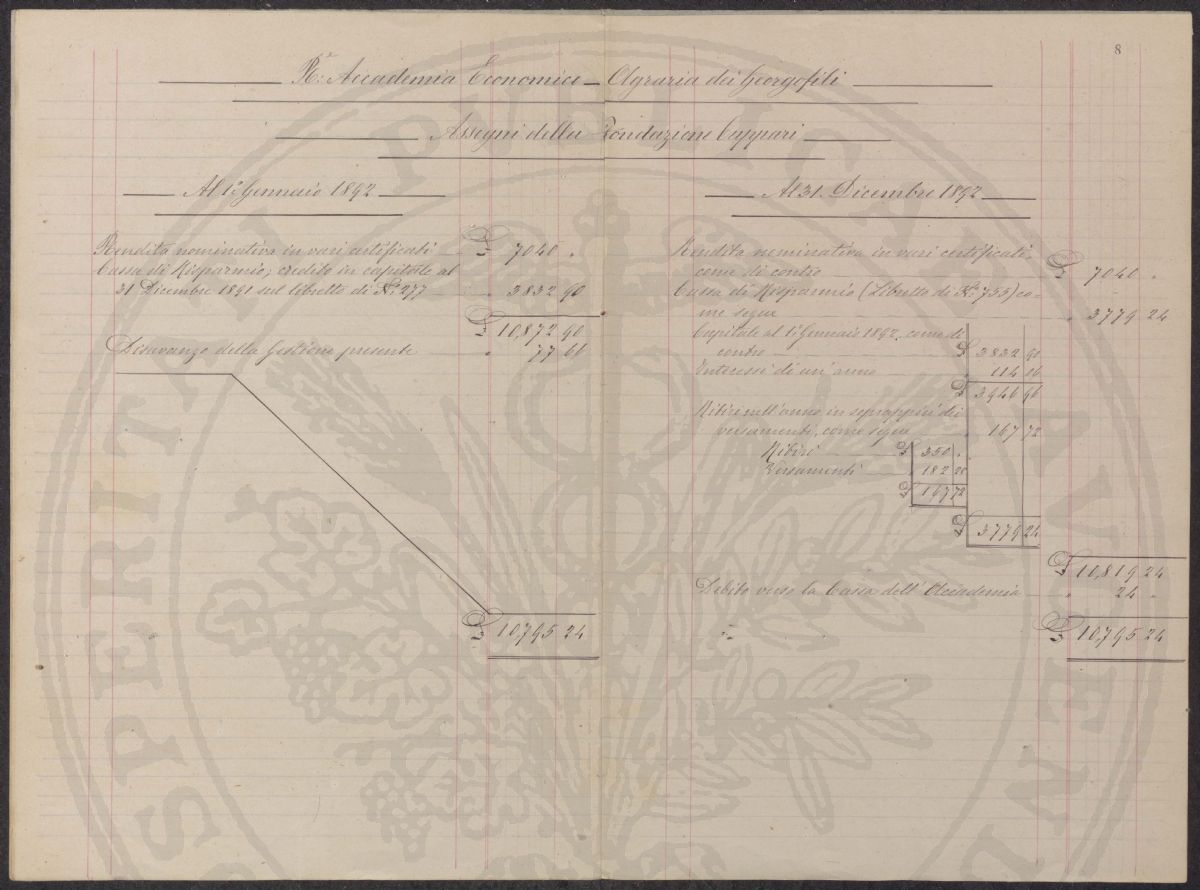 8
R.ª Accademia Economico - Agraria dei Georgofili
Assegni della Fondazione Cuppari
Al 1° Gennaio 1892
Rendita nominativa in vari certificati £ 7040 "
Cassa di Risparmio; credito in capitale al
31 Dicembre 1891 sul libretto di N.° 277 " 3832 90
£ 10,872 90
Disavanzo della Gestione presente " 77 66
£ 10795 24
Al 31. Dicembre 1892
Rendita nominativa in vari certificati,
come di contro £ 7040 "
Cassa di Risparmio (Libretto di N.° 755) co-
me segue " 3779 24
Capitale al 1° Gennaio 1892. come di
contro £ 3832 90
Interessi di un'anno " 114 06
£ 3946 96
Ritiri nell'anno in soprappiù di
versamenti, come segue " 167 72
Ritiri £ 350 "
Versamenti " 182 28
£ 167 72
£ 3779 24
£ 10,819 24
Debito verso la Cassa dell'Accademia " 24 "
£ 10,795 24
PERITAT PVBLICAE AVGEN